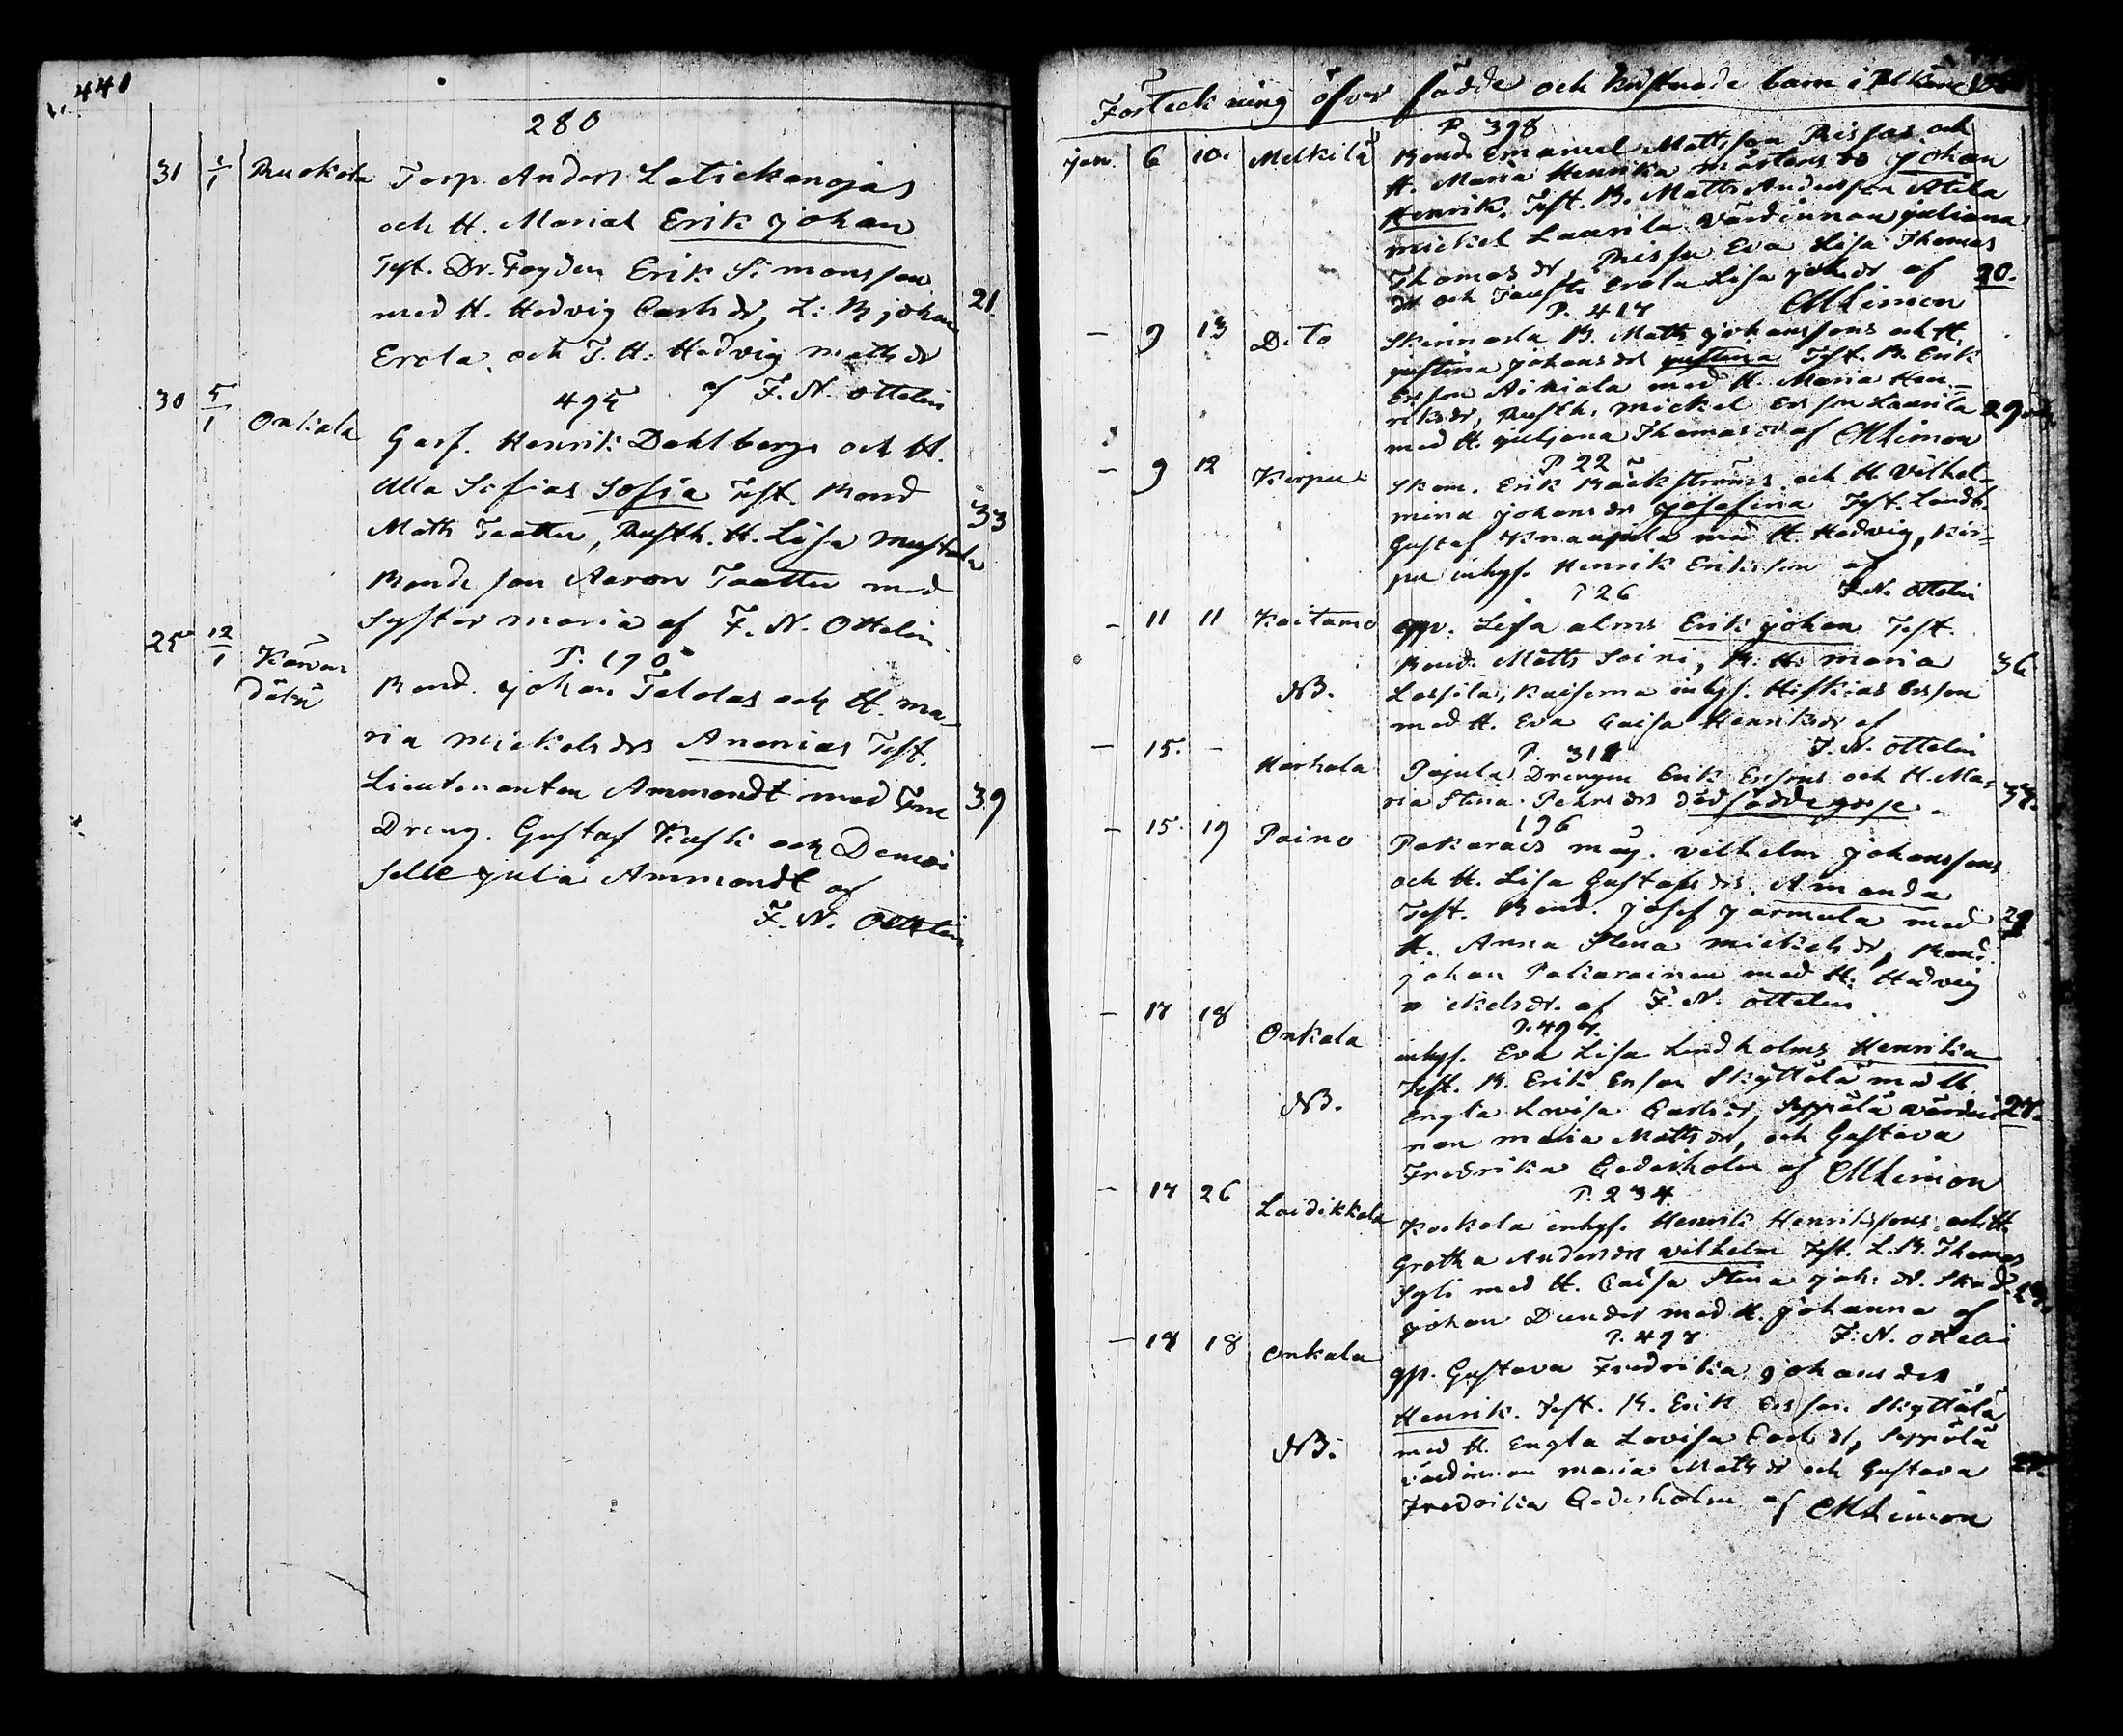 440
280
31 1/1 Ruokola Torp. Anders Latickangas
och H. Marias Erik Johan
Test. Dr. Fogden Erik Simonsson
med H. Hedvig Carlsdr, L: B Johan 21.
Erola, och T. H: Hedvig Mattsdr
af F. N. Ottelin
495
30 5/1 Onkala Garf. Henrik Dahlbergs och H.
Ulla Sofias Sofia Test. Bond
Matts Taattu, Rusth. H. Lisa Mustala 33
Bonde son Aaron Taattu med
Syster Maria af F. N. Ottelin
P. 170
25 12/1 Bond. Johan Tololas och H. Ma-
ria Mickelsdrs Ananias Test.
Lieutenanten Ammondt med Fru 39
Dreng. Gustaf Kusti och Demoi
selle Julia Ammondt af
F. N. Ottelin
Förteckning öfver födde och kristnade barn i Pelkäne
P. 398
Jan. 6 10. Melkilä Bond. Emanuel Mattsson Rissas och
H. Maria Henrika Mårtensdr Johan
Henrik. Test. B. Matts Andersson Atila
Mickel Laurila Värdinnan Juliana
Thomasdr, Rissu Eva Lisa Thomas
dr och Erola Lisa Johdr af 20.
P. 417 Limon
– 9 13 Dito Skinnarla B. Matts Johanssons och H.
Justina Johansdrs Justina Test. B. Erik
Ersson Aikiala med H. Maria Hen-
riksdr, Rusth. Mickel Ersson Laurila 29
med H. Juliana Thomasdr af Limon
P 22
– 9 12 Kirpu Skom. Erik Bäckströms och H. Vilhel-
mina Johansdrs Josefina Test. Landb.
Gustaf Knaapila med H. Hedvig, Kir-
pu inhys. Henrik Eriksson af
P 26 F. N. Ottelin
– 11 11 Kaitamo qp. Lisa Alms Erik Johan Test.
Bond. Matts Soini, B. H. Maria 36
NB. Lassila, Kaisema inhys. Hiskias Ersson
med H. Eva Caisa Henriksdr af
F. N. Ottelin
P. 311
– 15. – Harhala Pajula Drengen Erik Ersons och H. Ma-
ria Stina Pehrsdrs dödfödde gosse. 37.
196
– 15. 19 Paino Pakarais måg. Vilhelm Johanssons
och H. Lisa Gustafsdrs. Amanda
Test. Bond. Josef Jarmula med 29
H. Anna Stina Mickelsdr, Bond.
Johan Pakarainen med H. Hedvig
Mickelsdr. af F. N. Ottelin
P. 497.
– 17 18 Onkala inhys. Eva Lisa Lindholms Henrika
Test. B. Erik Erson Skyttälä med H.
NB. Engla Lovisa Carlsdr, Seppälä värdin 27.
nan Maria Mattsdr, och Gustava
Fredrika Cederholm af Limon
P. 234
– 17 26 Laidikkala Kokala inhys. Henrik Henrikssons och H.
Gretha Andersdrs Vilhelm Test. L. B. Thomas
Syli med H. Caisa Stina Joh. dr. Skad.
Johan Dunder med H. Johanna af
P. 497 F. N. Ottelin
– 19 18 Onkala qp. Gustava Fredrika Johansdrs
Henrik. Test. B. Erik Ersson Skyttälä
NB. med H. Engla Lovisa Carlsdr, Seppälä
värdinnan Maria Mattsdr och Gustava 27.
Fredrika Cederholm af Limon